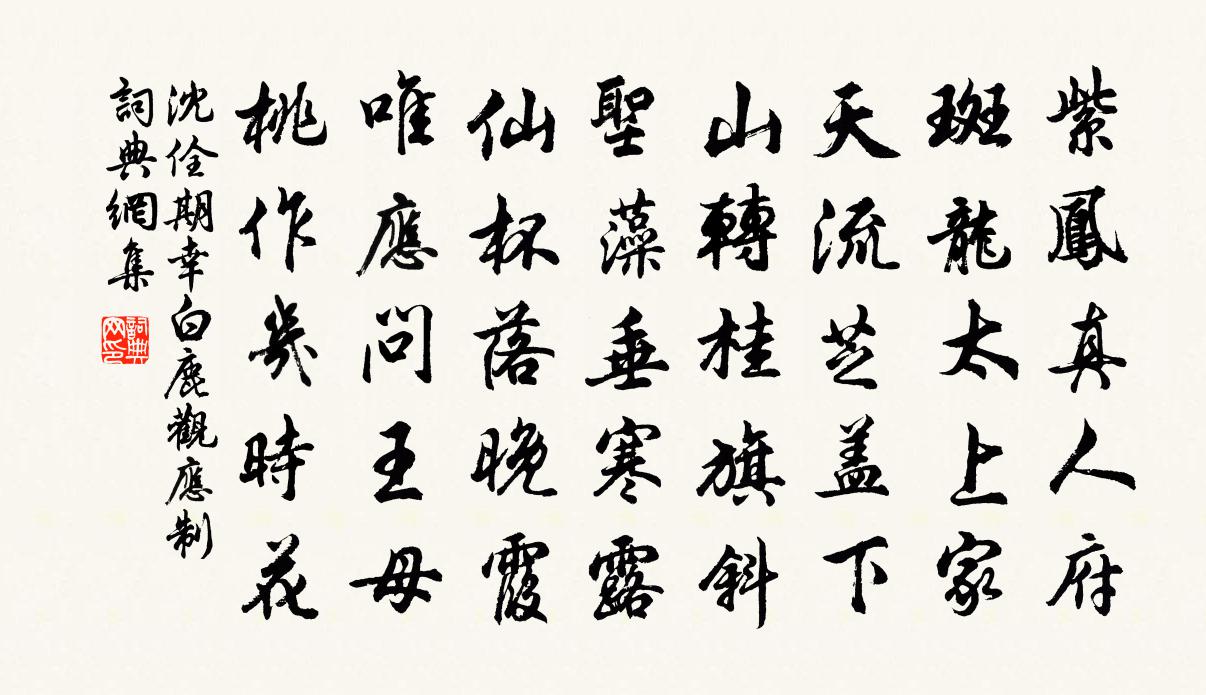 紫鳳真人府
斑龍太上家
天流芝蓋下
山轉桂旗斜
聖藻垂寒露
仙杯落晚霞
唯應問王母
桃作幾時花
沈佺期幸白鹿觀應制
詞典網集
詞典网印